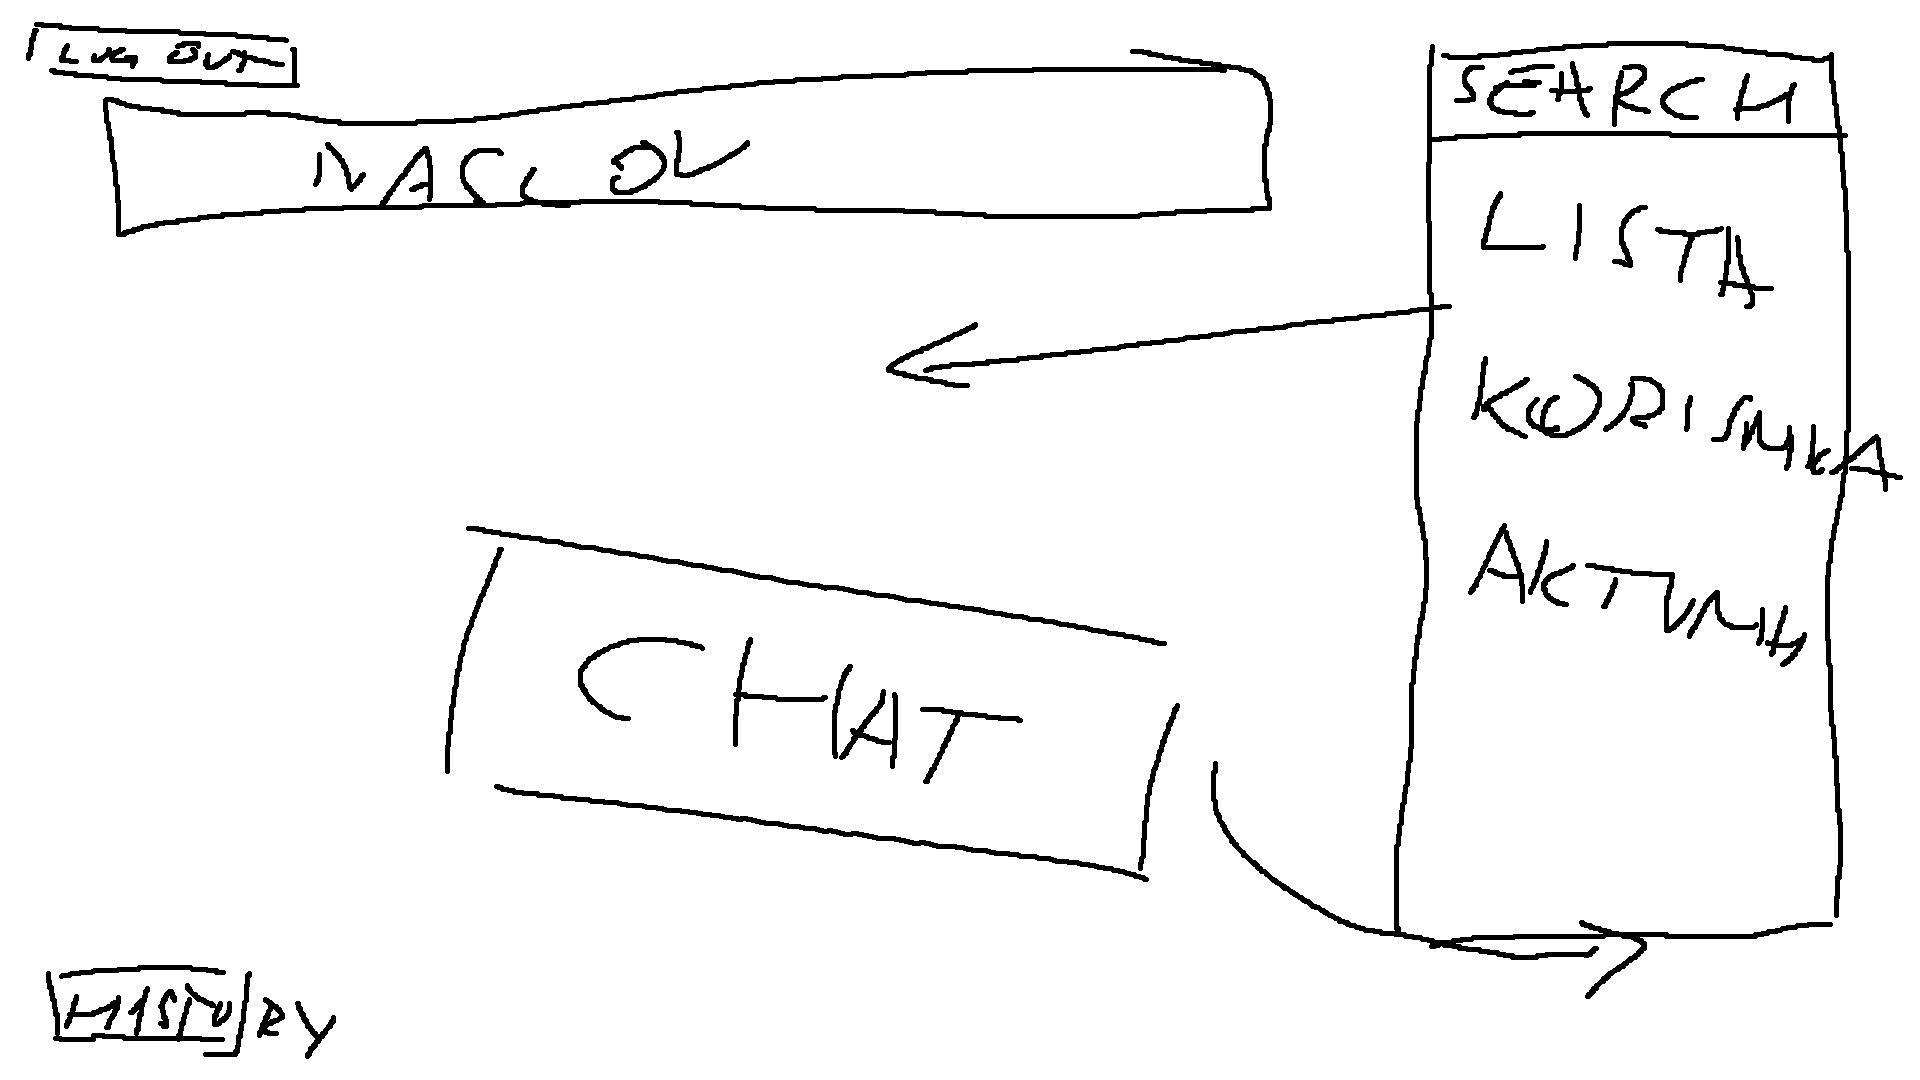 LOG OUT
NASLOV
SEARCH
LISTA
KORISNIKA
AKTIVNIH
CHAT
HISTORY